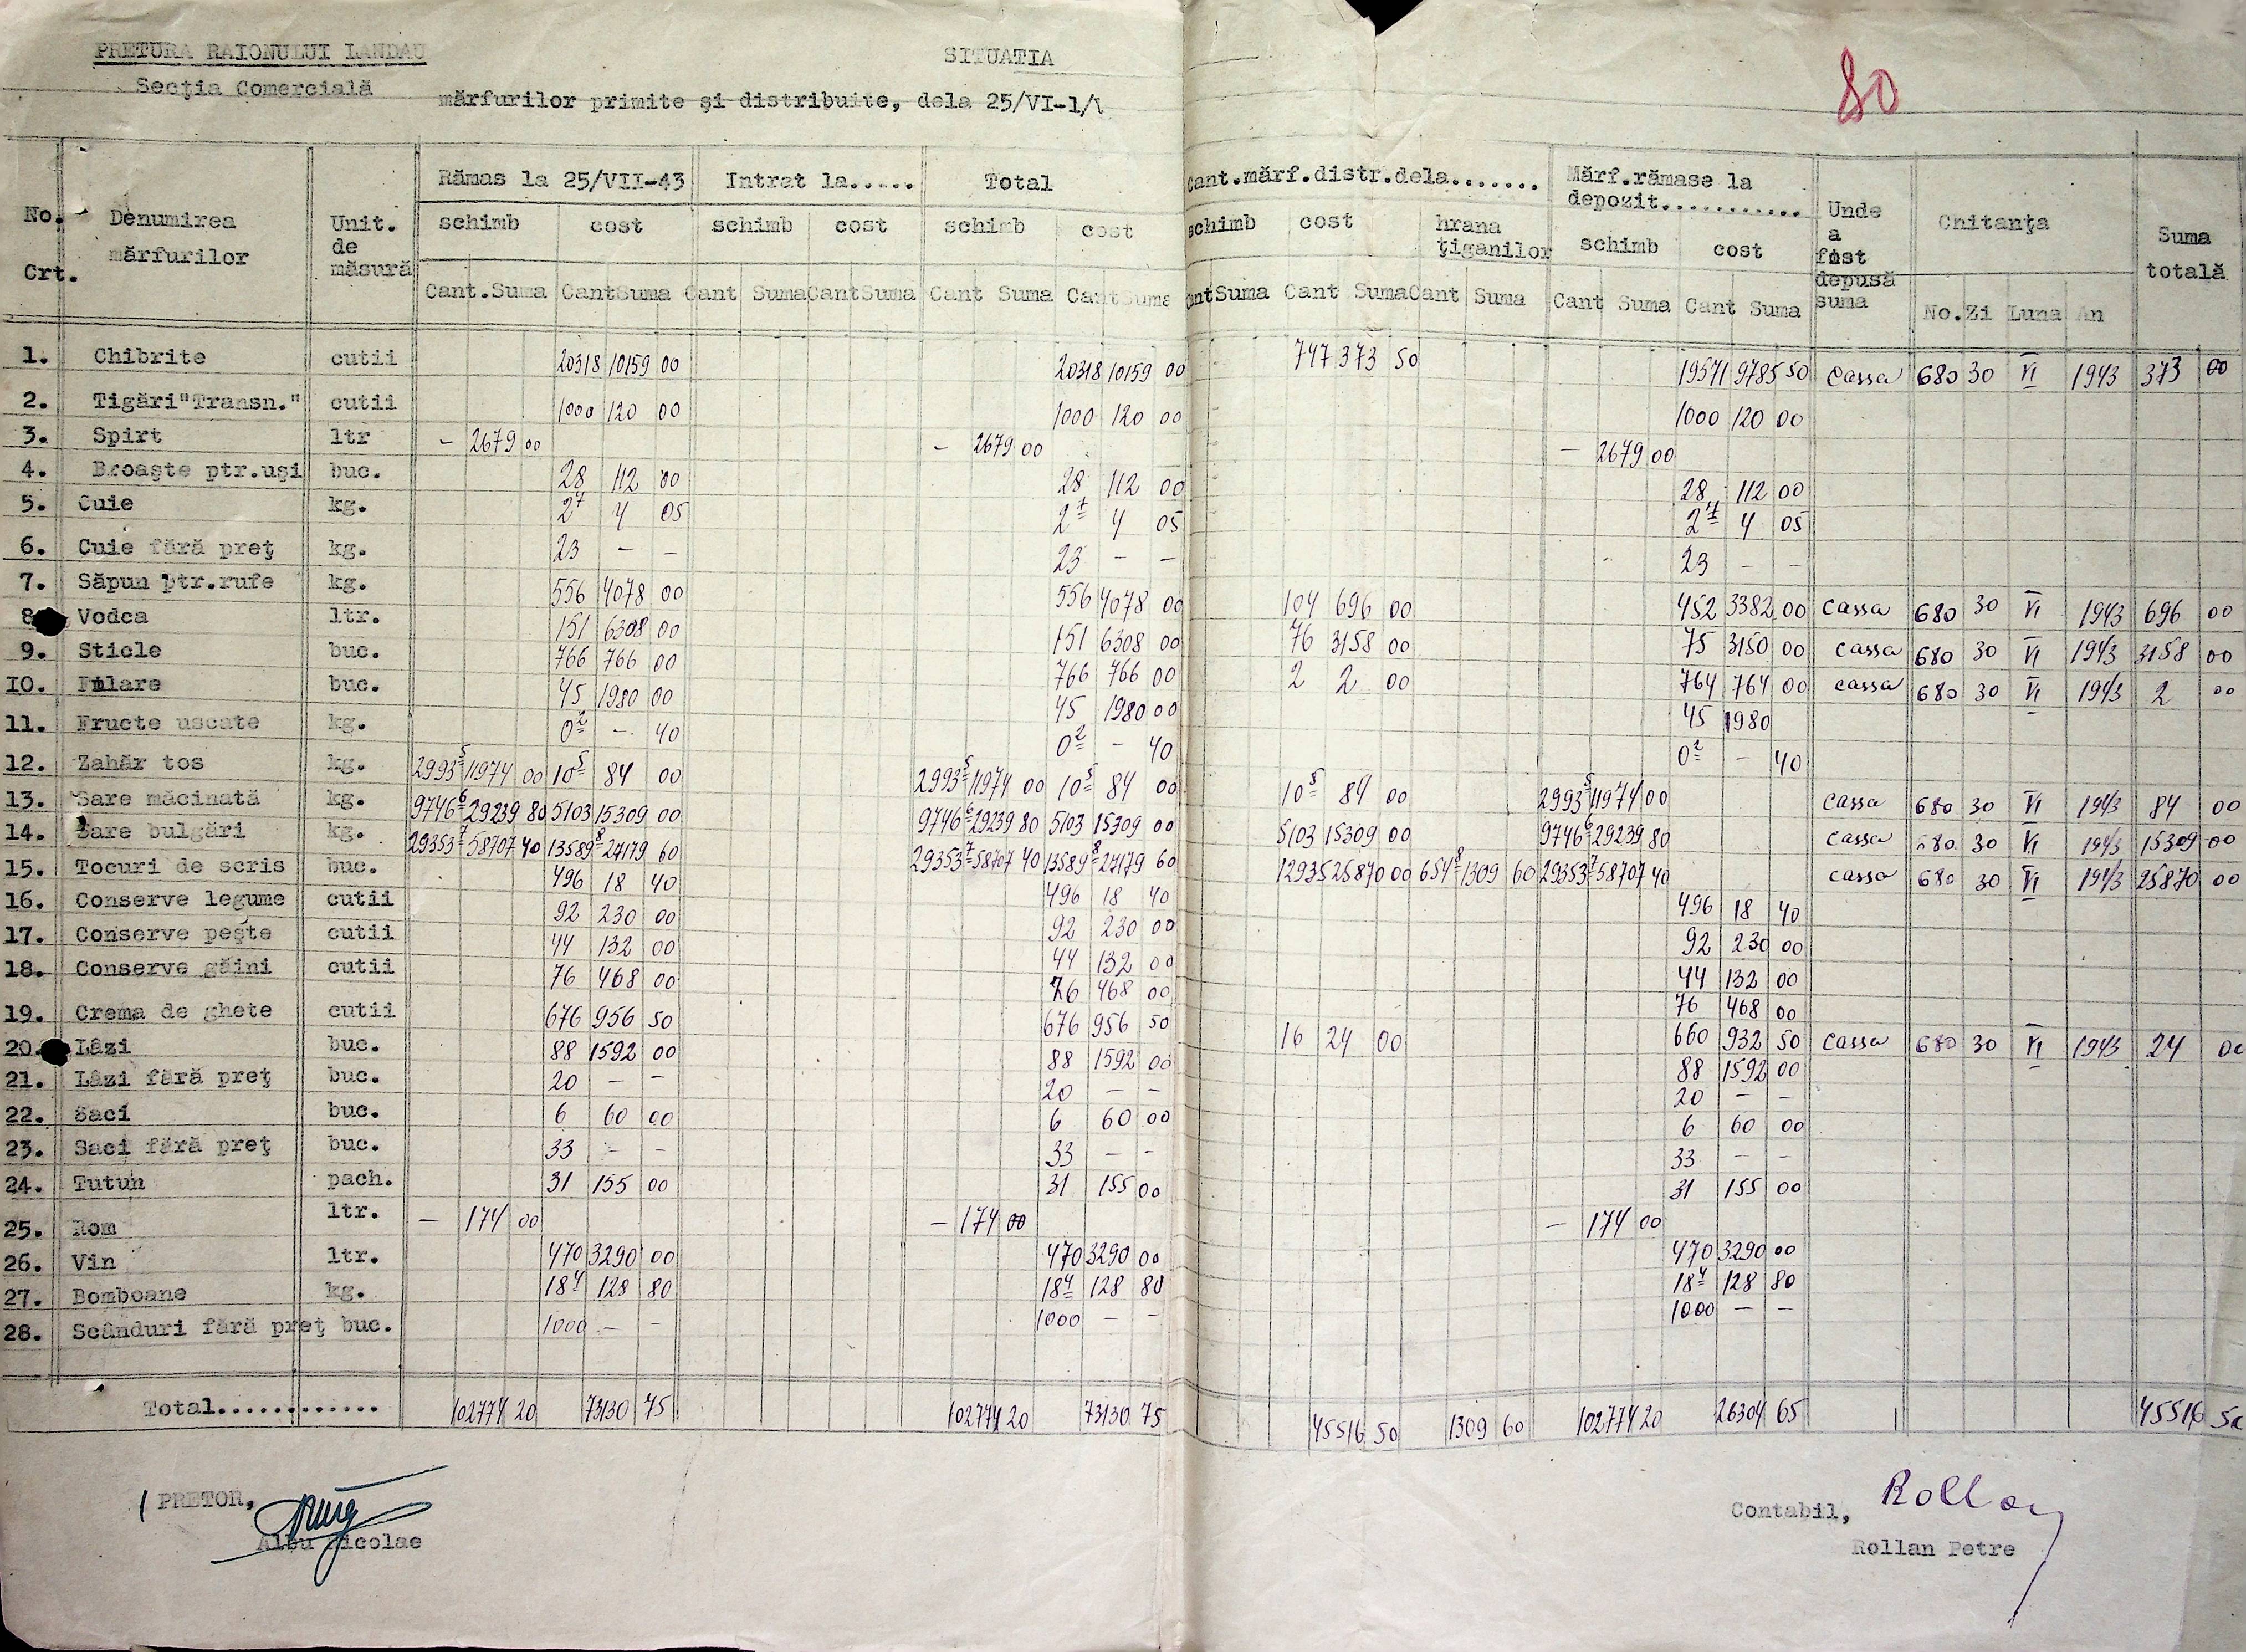 PRETURA RAIONULUI LANDAU
SITUATIA
80
Secţia Comercială
mărfurilor primite şi distribuite, dela 25/VI-1/V
No. Crt.
Denumirea mărfurilor
Unit. de măsură
Rămas la 25/VII-43
Intrat la.....
Total
Cant.mărf.distr.dela.......
Mărf.rămase la depozit............
Unde a fost depusă suma
Chitanţa
Suma totală
schimb cost schimb cost schimb cost schimb cost hrana ţiganilor schimb cost
Cant.Suma Cant Suma Cant Suma Cant Suma Cant Suma Cant Suma Cant Suma Cant Suma Cant Suma Cant Suma Cant Suma No. Zi Luna An
1. Chibrite cutii 20318 10159 00 20318 10159 00 747 373 50 19571 9785 50 Cassa 680 30 VI 1943 373 00
2. Tigări"Transn." cutii 1000 120 00 1000 120 00 1000 120 00
3. Spirt ltr – 2679 00 – 2679 00 – 2679 00
4. Broaşte ptr.uşi buc. 28 112 00 28 112 00 28 112 00
5. Cuie kg. 2⁷ 4 05 2⁷ 4 05 2⁷ 4 05
6. Cuie fără preţ kg. 23 – – 23 – – 23 – –
7. Săpun ptr.rufe kg. 556 4078 00 556 4078 00 104 696 00 452 3382 00 Cassa 680 30 VI 1943 696 00
8. Vodca ltr. 151 6308 00 151 6308 00 76 3158 00 75 3150 00 Cassa 680 30 VI 1943 3158 00
9. Sticle buc. 766 766 00 766 766 00 2 2 00 764 764 00 Cassa 680 30 VI 1943 2 00
10. Filare buc. 45 1980 00 45 1980 00 45 1980
11. Fructe uscate kg. 0² – 40 0² – 40 0² – 40
12. Zahăr tos kg. 2993⁵ 11974 00 10⁵ 84 00 2993⁵ 11974 00 10⁵ 84 00 10⁵ 84 00 2993⁵ 11974 00 Cassa 680 30 VI 1943 84 00
13. Sare măcinată kg. 9746⁶ 29239 80 5103 15309 00 9746⁶ 29239 80 5103 15309 00 5103 15309 00 9746⁶ 29239 80 Cassa 680 30 VI 1943 15309 00
14. Sare bulgări kg. 29353⁷ 58707 40 13589⁸ 27179 60 29353⁷ 58707 40 13589⁸ 27179 60 12935 25870 00 654⁸ 1309 60 29353⁷ 58707 40 Cassa 680 30 VI 1943 25870 00
15. Tocuri de scris buc. 496 18 40 496 18 40 496 18 40
16. Conserve legume cutii 92 230 00 92 230 00 92 230 00
17. Conserve peşte cutii 44 132 00 44 132 00 44 132 00
18. Conserve găini cutii 76 468 00 76 468 00 76 468 00
19. Crema de ghete cutii 676 956 50 676 956 50 16 24 00 660 932 50 Cassa 680 30 VI 1943 24 00
20. Lăzi buc. 88 1592 00 88 1592 00 88 1592 00
21. Lăzi fără preţ buc. 20 – – 20 – – 20 – –
22. Saci buc. 6 60 00 6 60 00 6 60 00
23. Saci fără preţ buc. 33 – – 33 – – 33 – –
24. Tutun pach. 31 155 00 31 155 00 31 155 00
25. Rom ltr. – 174 00 – 174 00 – 174 00
26. Vin ltr. 470 3290 00 470 3290 00 470 3290 00
27. Bomboane kg. 18⁴ 128 80 18⁴ 128 80 18⁴ 128 80
28. Scânduri fără preţ buc. 1000 – – 1000 – – 1000 – –
Total............ 102774 20 73130 75 102774 20 73130 75 45516 50 1309 60 102774 20 26304 65 45516 50
PRETOR,
Albu Nicolae
Rollan
Contabil,
Rollan Petre